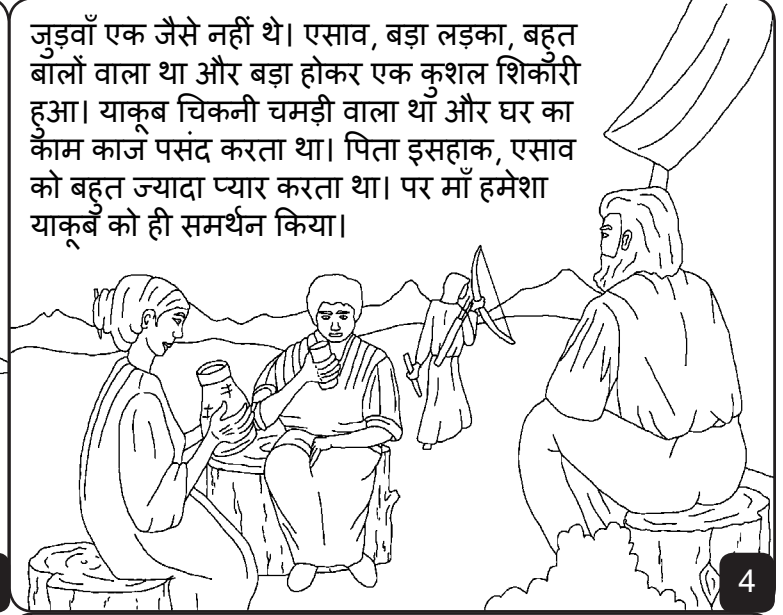 जुड़वाँ एक जैसे नहीं थे। एसाव, बड़ा लड़का, बहुत
बालों वाला था और बड़ा होकर एक कुशल शिकारी
हुआ। याकूब चिकनी चमड़ी वाला था और घर का
काम काज पसंद करता था। पिता इसहाक, एसाव
को बहुत ज्यादा प्यार करता था। पर माँ हमेशा
याकूब को ही समर्थन किया।
4